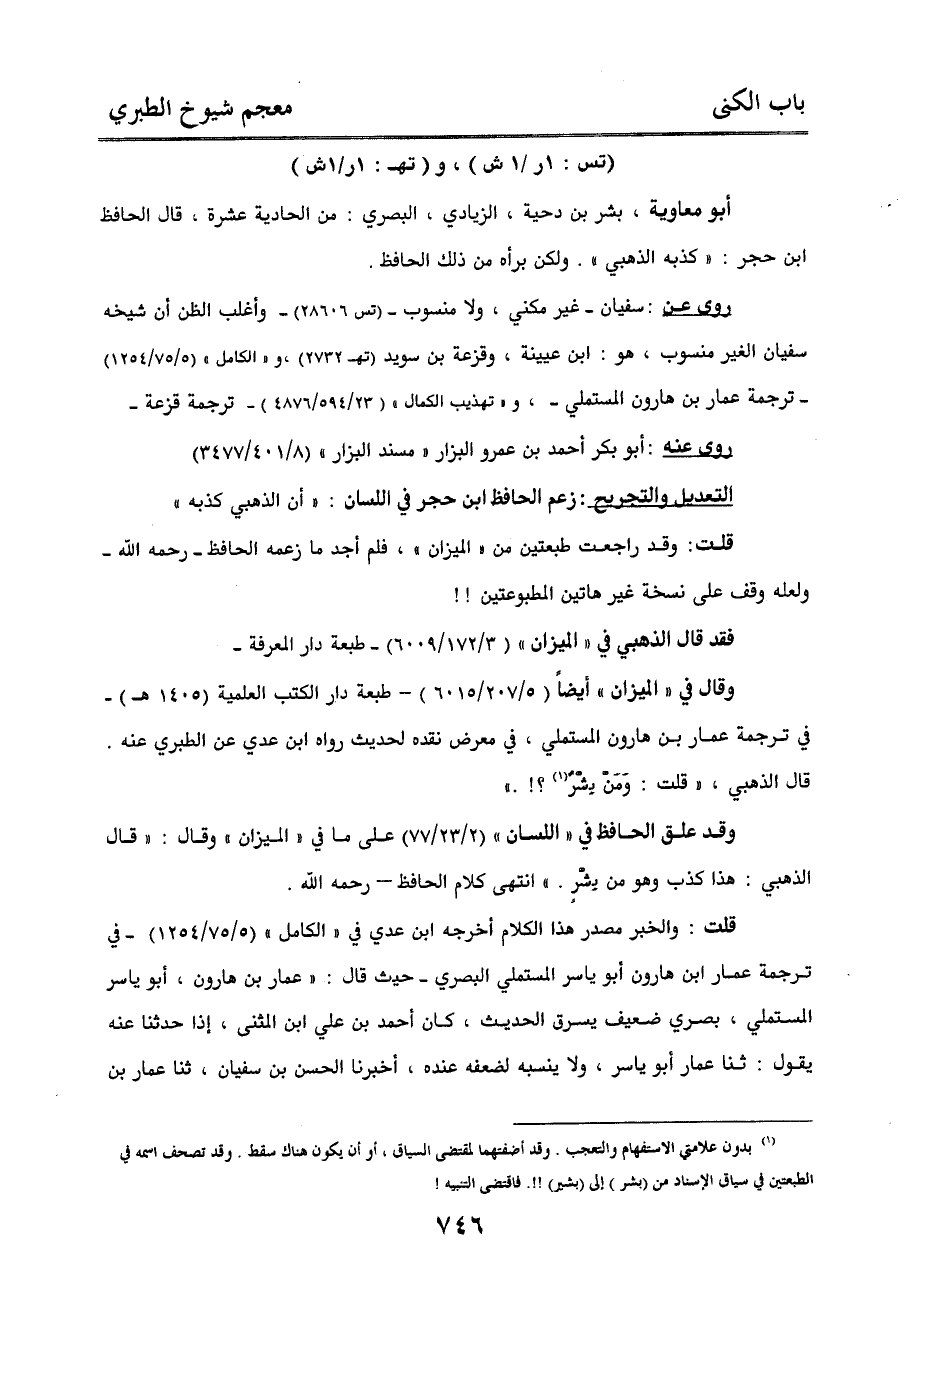 باب الكنى
معجم شيوخ الطبري
(تس : ١ر /١ ش ) ، و ( تهـ : ١ر/١ش )
أبو معاوية ، بشر بن دحية ، الزيادي ، البصري : من الحادية عشرة ، قال الحافظ
ابن حجر : « كذبه الذهبي » . ولكن برأه من ذلك الحافظ .
روى عن : سفيان ـ غير مكني ، ولا منسوب ـ (تس ٢٨٦٠٦) ـ وأغلب الظن أن شيخه
سفيان الغير منسوب ، هو : ابن عيينة ، وقزعة بن سويد (تهـ ٢٧٣٢) ،و « الكامل » (١٢٥٤/٧٥/٥)
ـ ترجمة عمار بن هارون المستملي ـ ، و « تهذيب الكمال » ( ٤٨٧٦/٥٩٤/٢٣ ) ـ ترجمة قزعة ـ
روى عنه : أبو بكر أحمد بن عمرو البزار « مسند البزار » (٣٤٧٧/٤٠١/٨)
التعديل والتجريح : زعم الحافظ ابن حجر في اللسان : « أن الذهبي كذبه »
قلت : وقد راجعت طبعتين من « الميزان » ، فلم أجد ما زعمه الحافظ ـ رحمه الله ـ
ولعله وقف على نسخة غير هاتين المطبوعتين ! !
فقد قال الذهبي في « الميزان » ( ٦٠٠٩/١٧٢/٣) ـ طبعة دار المعرفة ـ
وقال في « الميزان » أيضاً ( ٦٠١٥/٢٠٧/٥ ) – طبعة دار الكتب العلمية (١٤٠٥ هـ ) ـ
في ترجمة عمار بن هارون المستملي ، في معرض نقده لحديث رواه ابن عدي عن الطبري عنه .
قال الذهبي ، « قلت : وَمَنْ بِشْرٌ(١) ؟! .»
وقد علق الحافظ في « اللسان » (٧٧/٢٣/٢) على ما في « الميزان » وقال : « قال
الذهبي : هذا كذب وهو من بِشْرٍ . » انتهى كلام الحافظ – رحمه الله .
قلت : والخبر مصدر هذا الكلام أخرجه ابن عدي في « الكامل » (١٢٥٤/٧٥/٥) ـ في
ترجمة عمار ابن هارون أبو ياسر المستملي البصري ـ حيث قال : « عمار بن هارون ، أبو ياسر
المستملي ، بصري ضعيف يسرق الحديث ، كان أحمد بن علي ابن المثنى ، إذا حدثنا عنه
يقول : ثنا عمار أبو ياسر ، ولا ينسبه لضعفه عنده ، أخبرنا الحسن بن سفيان ، ثنا عمار بن
(١) بدون علامتي الاستفهام والتعجب . وقد أضفتهما لمقتضى السياق ، أو أن يكون هناك سقط . وقد تصحف اسمه في
الطبعتين في سياق الإسناد من (بشر ) إلى (بشير) !!. فاقتضى التنبيه !
٧٤٦